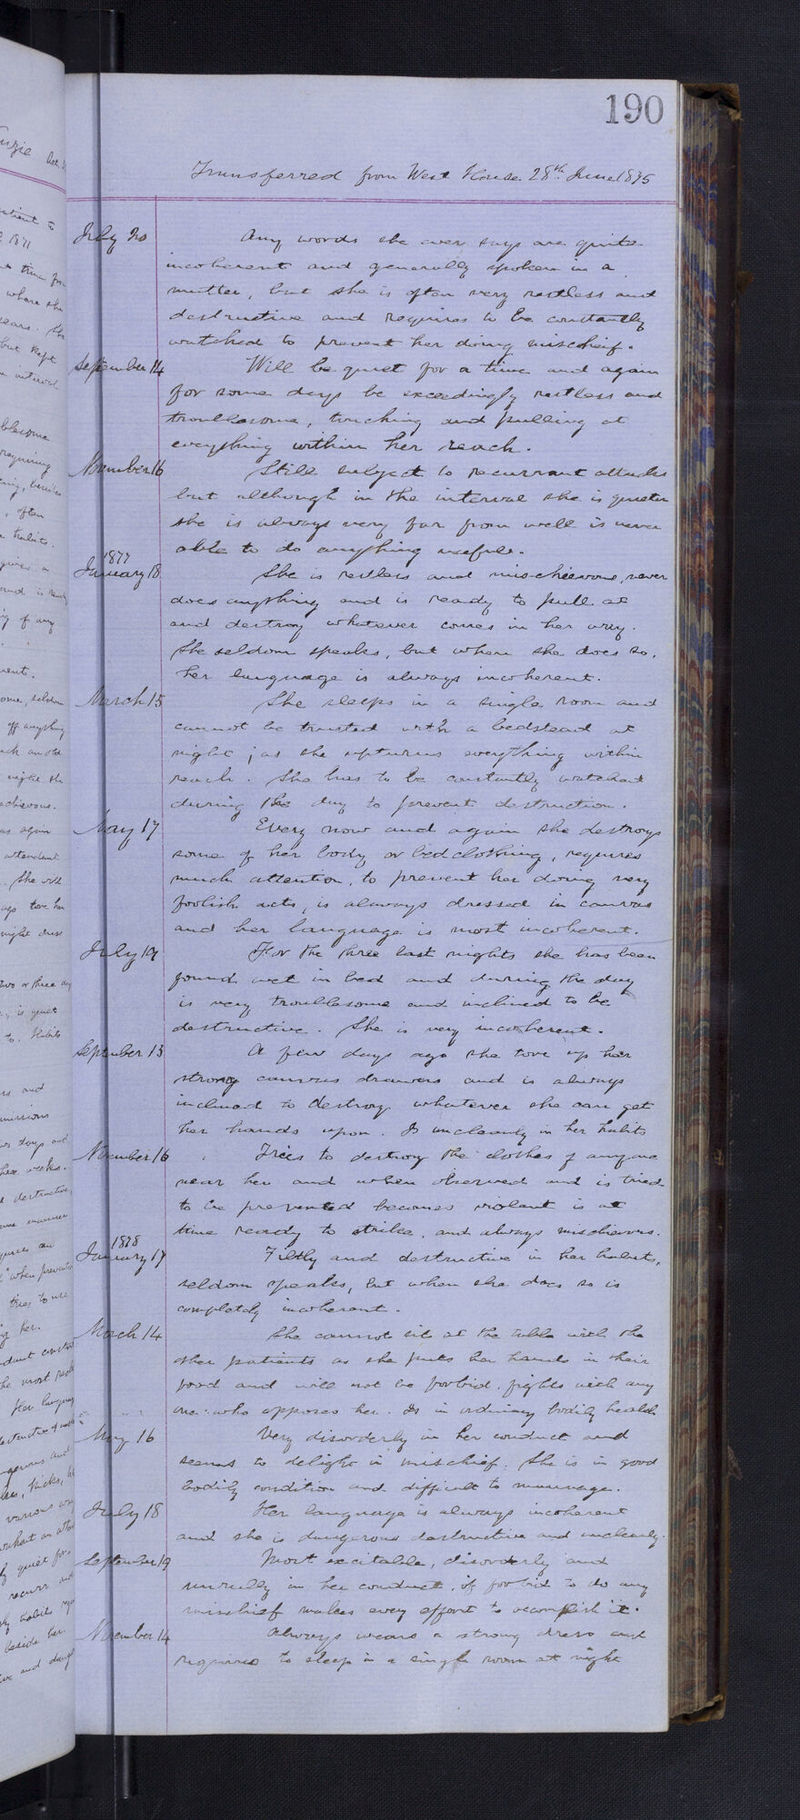 190
Transferred from West House 28th June 1875
July 20 Any words she ever says are quite
incoherent and generally spoken in a
mutter, but she is often very restless and
destructive and requires to be constantly
watched to prevent her doing mischief.
September 14 Will be quiet for a time and again
for some days be exceedingly restless and
troublesome, touching and pulling at
everything within her reach.
November 16 Still subject to recurrent attacks
but although in the interval she is quieter
she is always very far from well is never
able to do anything useful.
1877
January 18 She is restless and mischievous, never
does anything and is ready to pull at
and destroy whatever comes in her way.
She seldom speaks, but when she does so,
her language is always incoherent.
March 15 She sleeps in a single room and
cannot be trusted with a bedstead at
night; as she upturns everything within
reach. She has to be constantly watched
during the day to prevent destruction.
May 17 Every now and again she destroys
some of her body or bedclothing, requires
much attention, to prevent her doing very
foolish acts, is always dressed in canvas
and her language is most incoherent.
July 19 For the three last nights she has been
found wet in bed and during the day
is very troublesome and inclined to be
destructive. She is very incoherent.
September 13 A few days ago she tore up her
strong canvas drawers and is always
inclined to destroy whatever she can get
her hands upon. Is uncleanly in her habits
November 16 Tries to destroy the clothes of anyone
near her and when observed and is tried
to be prevented becomes violent is at
time ready to strike, and always mischievous.
1878
January 17 Filthy and destructive in her habits,
seldom speaks, but when she does so is
completely incoherent.
March 14 She cannot sit at the table with the
other patients as she puts her hands in their
food and will not be forbid, fights with any
one who opposes her. Is in ordinary bodily health
May 16 Very disorderly in her conduct and
seems to delight in mischief. She is in good
bodily condition and difficult to manage.
July 18 Her language is always incoherent
and she is dangerous destructive and uncleanly.
September 19 Most excitable, disorderly and
unruly in her conduct, if forbid to do any
mischief makes every effort to accomplish it.
November 14 Always wears a strong dress and
requires to sleep in a single room at night